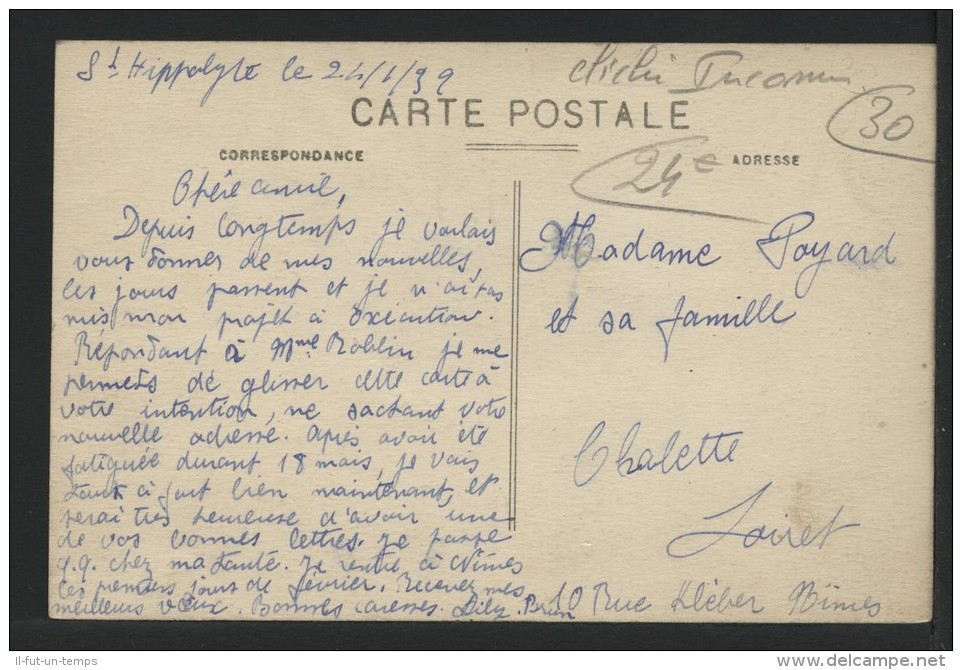 St Hippolyte le 24/1/39
cliché Inconnu
30
CARTE POSTALE
24€
CORRESPONDANCE
ADRESSE
Chère amie,
Depuis longtemps je voulais
vous donner de mes nouvelles,
les jours passent et je n'ai pas
mis mon projet à exécution.
Répondant à Mme Roblin je me
permets de glisser cette carte à
votre intention, ne sachant votre
nouvelle adresse. Après avoir été
fatiguée durant 18 mois, je vais
tout à fait bien maintenant, et
serai très heureuse d'avoir une
de vos bonnes lettres. Je passe
q.q. chez ma tante. Je rentre à Nîmes
les premiers jours de février. Recevez mes
meilleurs vœux. Bonnes caresses.
10 Rue Kléber Nîmes
Madame Poyard
et sa famille
Chalette
Loiret
Il-fut-un-temps
http://www.delcampe.net